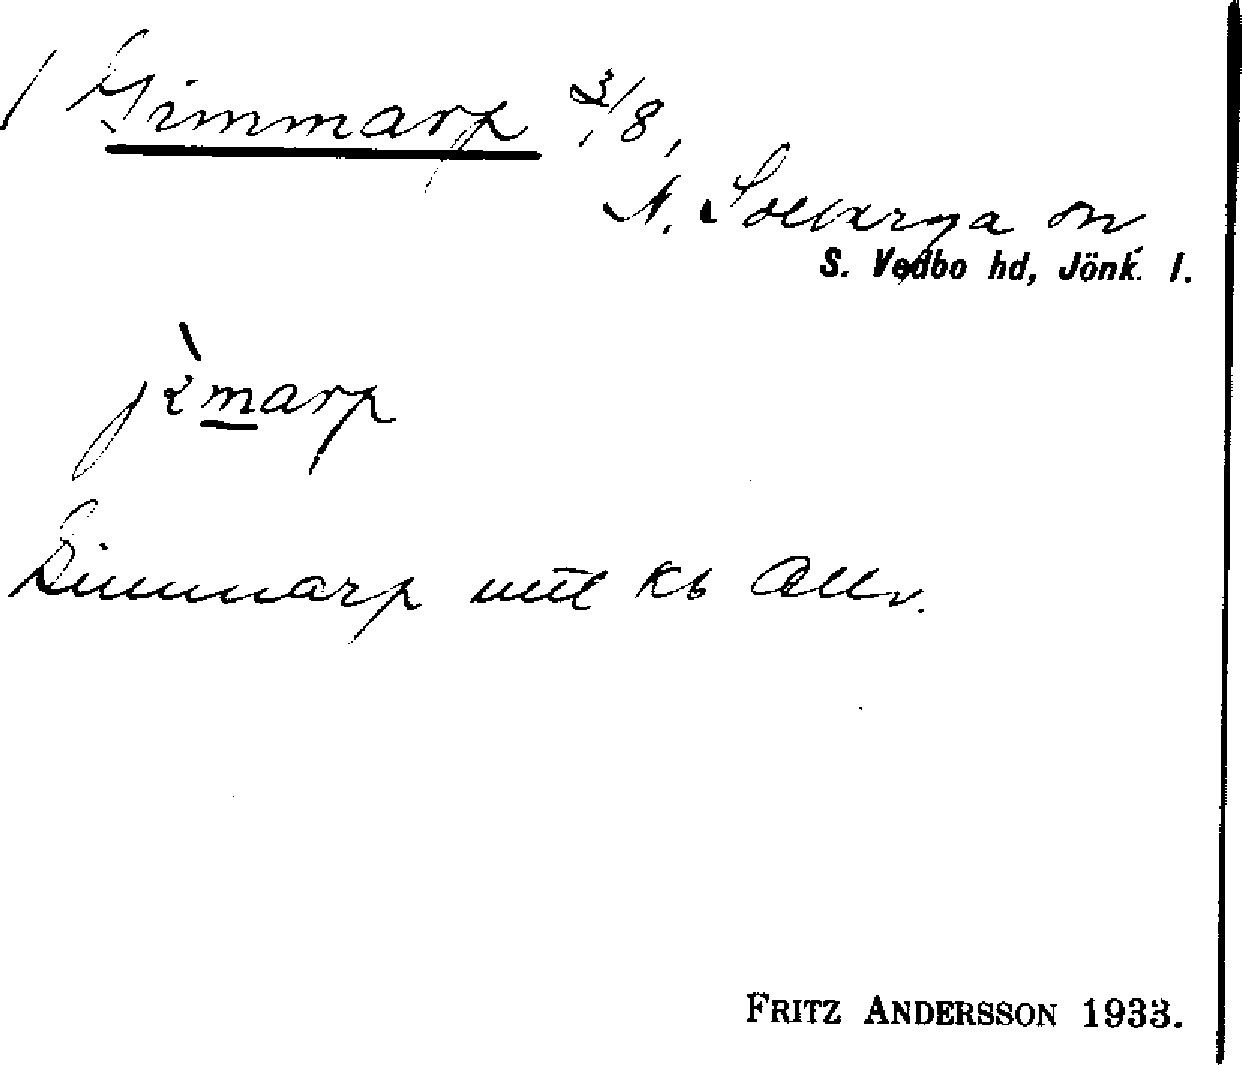 Gimmarp 3/8,
N. Solberga sn
S. Vedbo hd, Jönk. l.
jìmarp
Gimmarp mtl Kb Allv.
FRITZ ANDERSSON 1933.